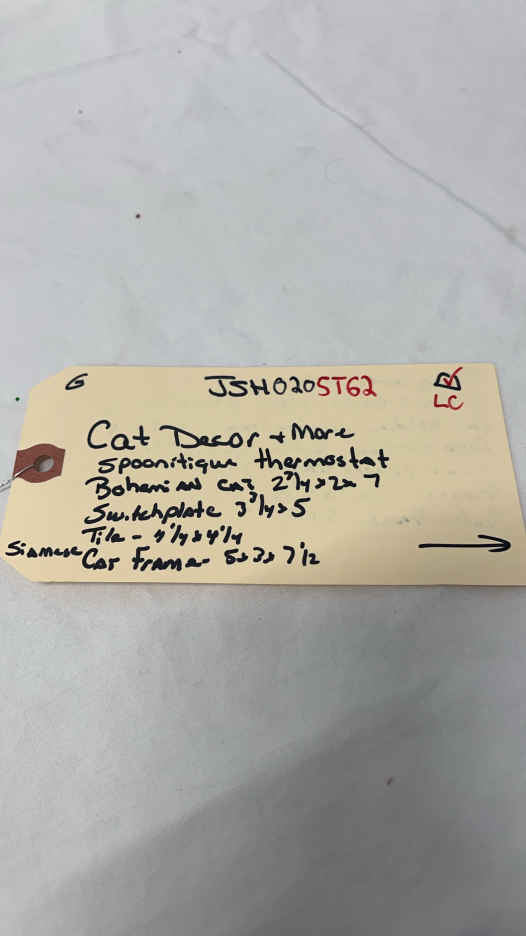 G JSH0205T62 B
LC
Cat Decor + More
Spoontique thermostat
Bohemian cat 2 3/4 x 2 x 7
Switchplate 3 3/4 x 5
Tile - 4 1/4 x 4 1/4
Siamese Cat Frame - 5 x 3 x 7 1/2